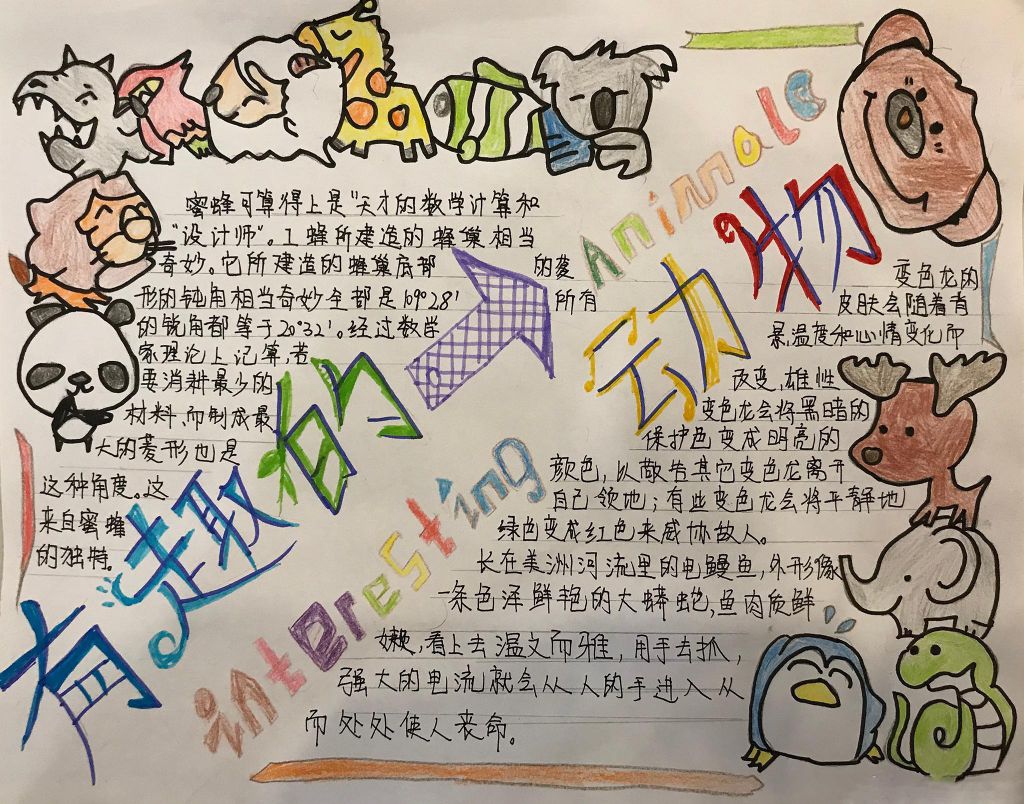 有趣的动物
interesting
Aninnale
蜜蜂可算得上是“天才的数学计算和
“设计师”。工蜂所建造的蜂巢相当
奇妙。它所建造的蜂巢底部的菱
形的钝角相当奇妙全都是109°28′所有
的锐角都等于20°32′。经过数学
家理论上记算,若
要消耗最少的
材料、而制成最
大的菱形也是
这种角度。这
来自蜜蜂
的独特。
变色龙的
皮肤会随着背
景、温度和心情变化而
改变,雄性
变色龙会将黑暗的
保护色变成明亮的
颜色,以敬告其它变色龙离开
自己领地;有些变色龙会将平静地
绿色变成红色来威协敌人。
长在美洲河流里的电鳗鱼,外形像
一条色泽鲜艳的大蟒蛇,鱼肉质鲜
嫩,看上去温文而雅,用手去抓,
强大的电流就会从人的手进入从
而处处使人丧命。